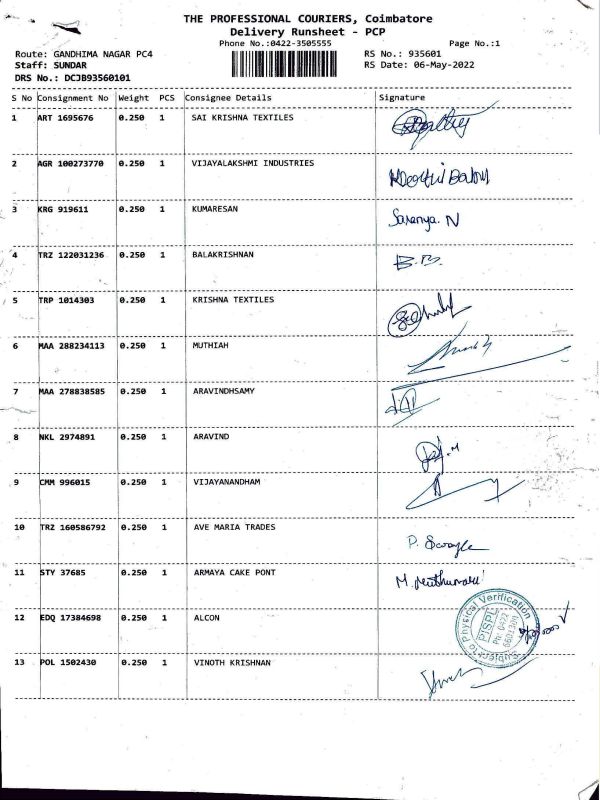 THE PROFESSIONAL COURIERS, Coimbatore
Delivery Runsheet - PCP
Phone No.:0422-3505555
Page No.:1
Route: GANDHIMA NAGAR PC4
RS No.: 935601
Staff: SUNDAR
RS Date: 06-May-2022
DRS No.: DCJB93560101
S No Consignment No Weight PCS Consignee Details Signature
1 ART 1695676 0.250 1 SAI KRISHNA TEXTILES
2 AGR 100273770 0.250 1 VIJAYALAKSHMI INDUSTRIES
3 KRG 919611 0.250 1 KUMARESAN Saranya. N
4 TRZ 122031236 0.250 1 BALAKRISHNAN B.B.
5 TRP 1014303 0.250 1 KRISHNA TEXTILES
6 MAA 288234113 0.250 1 MUTHIAH
7 MAA 278838585 0.250 1 ARAVINDHSAMY
8 NKL 2974891 0.250 1 ARAVIND
9 CMM 996015 0.250 1 VIJAYANANDHAM
10 TRZ 160586792 0.250 1 AVE MARIA TRADES
11 STY 37685 0.250 1 ARMAYA CAKE PONT
12 EDQ 17384698 0.250 1 ALCON
13 POL 1502430 0.250 1 VINOTH KRISHNAN
Subject to Physical Verification
PISPL
Ph: 0422